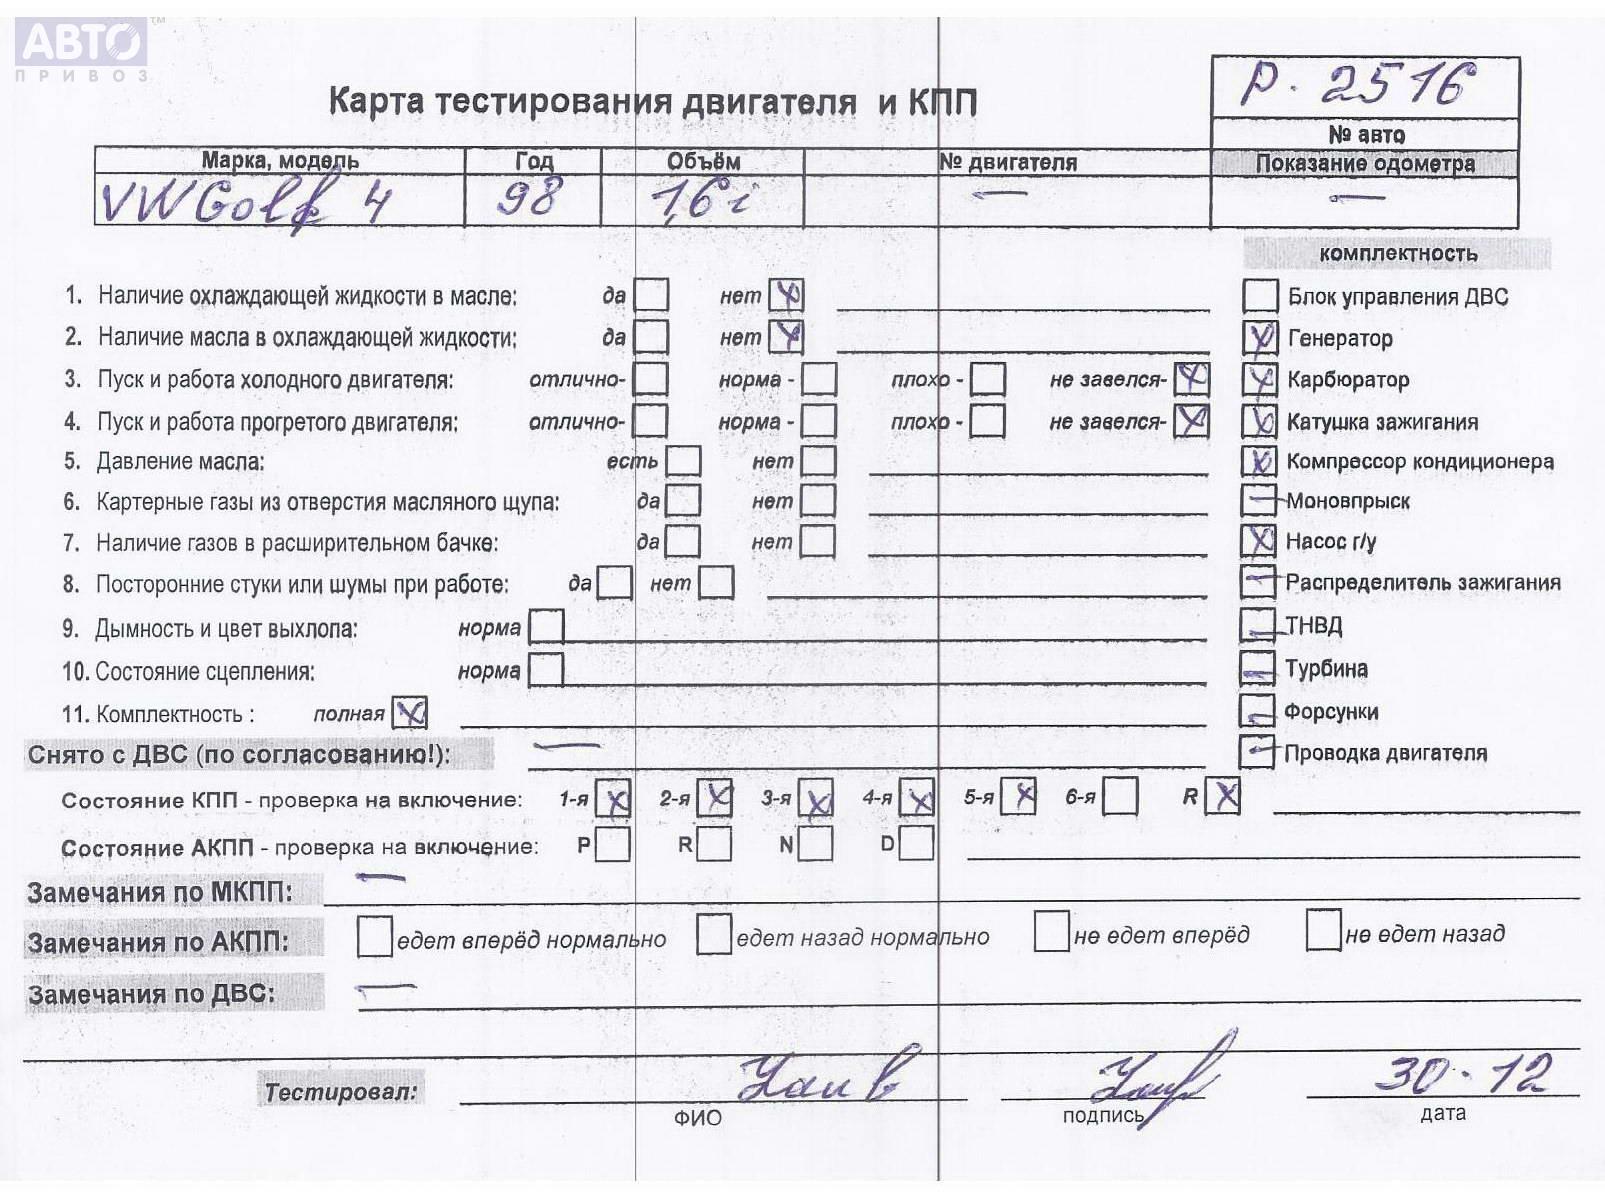 АВТО™
ПРИВОЗ
Карта тестирования двигателя и КПП
Р. 2516
№ авто
Марка, модель Год Объём № двигателя Показание одометра
VW Golf 4 98 1,6i — —
комплектность
1. Наличие охлаждающей жидкости в масле: да нет X Блок управления ДВС
2. Наличие масла в охлаждающей жидкости: да нет X X Генератор
3. Пуск и работа холодного двигателя: отлично- норма - плохо - не завелся- X X Карбюратор
4. Пуск и работа прогретого двигателя: отлично- норма - плохо - не завелся- X X Катушка зажигания
5. Давление масла: есть нет X Компрессор кондиционера
6. Картерные газы из отверстия масляного щупа: да нет — Моновпрыск
7. Наличие газов в расширительном бачке: да нет X Насос г/у
8. Посторонние стуки или шумы при работе: да нет — Распределитель зажигания
9. Дымность и цвет выхлопа: норма — ТНВД
10. Состояние сцепления: норма — Турбина
11. Комплектность : полная X — Форсунки
Снято с ДВС (по согласованию!): — — Проводка двигателя
Состояние КПП - проверка на включение: 1-я X 2-я X 3-я X 4-я X 5-я X 6-я R X
Состояние АКПП - проверка на включение: P R N D
Замечания по МКПП: —
Замечания по АКПП: едет вперёд нормально едет назад нормально не едет вперёд не едет назад
Замечания по ДВС: —
Тестировал: 30-12
ФИО подпись дата